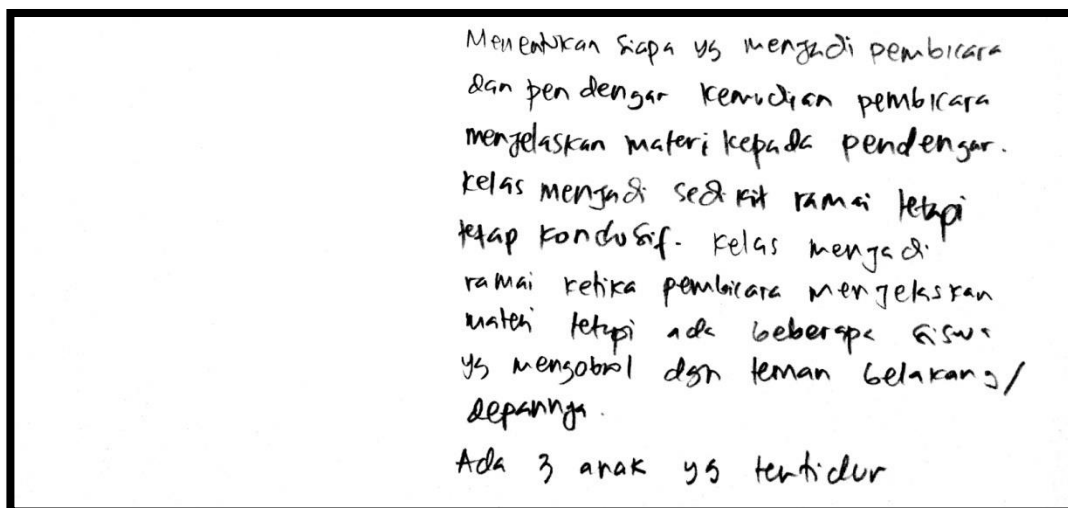 Menentukan siapa yg menjadi pembicara
dan pendengar kemudian pembicara
menjelaskan materi kepada pendengar.
kelas menjadi sedikit ramai tetapi
tetap kondusif. kelas menjadi
ramai ketika pembicara menjelaskan
materi tetapi ada beberapa siswa
yg mengobrol dgn teman belakang/
depannya.
Ada 3 anak yg tertidur